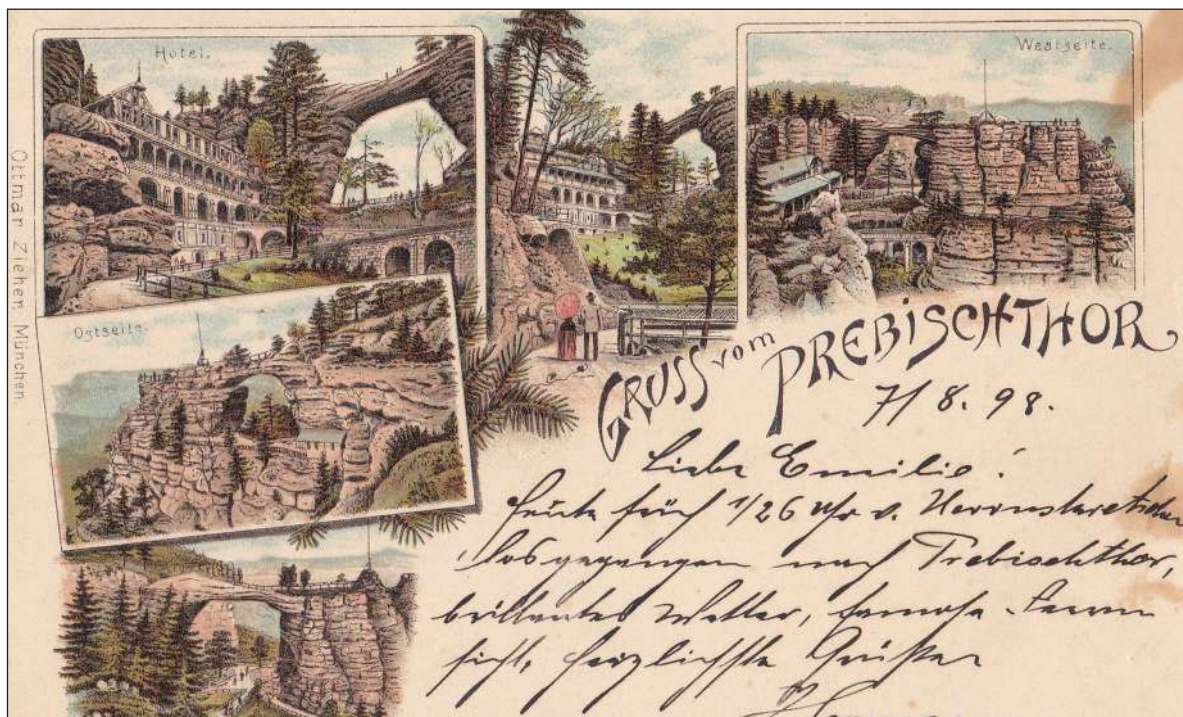 Hotel.
Westseite.
Ostseite.
Ottmar Zieher, München.
GRUSS vom PREBISCHTHOR
7/8. 98.
Liebe Emilie!
Heute früh 1/26 Uhr v. Herrnskretschen
losgegangen nach Prebischthor,
brillantes Wetter, famose Fern
sicht, herzlichste Grüße